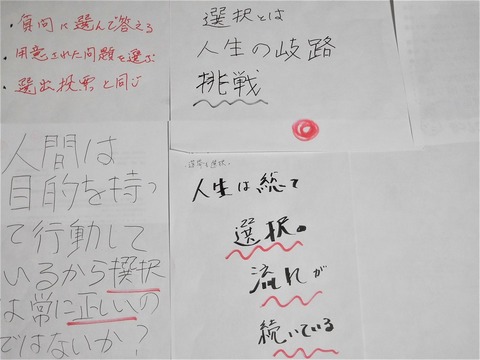 ・質問に選んで答える
・用意された問題を選ぶ
・選出投票と同じ
選択とは
人生の岐路
挑戦
人間は
目的を持っ
て行動して
いるから撰択
は常に正しいの
ではないか？
人生は総て
選択。
流れが
続いている